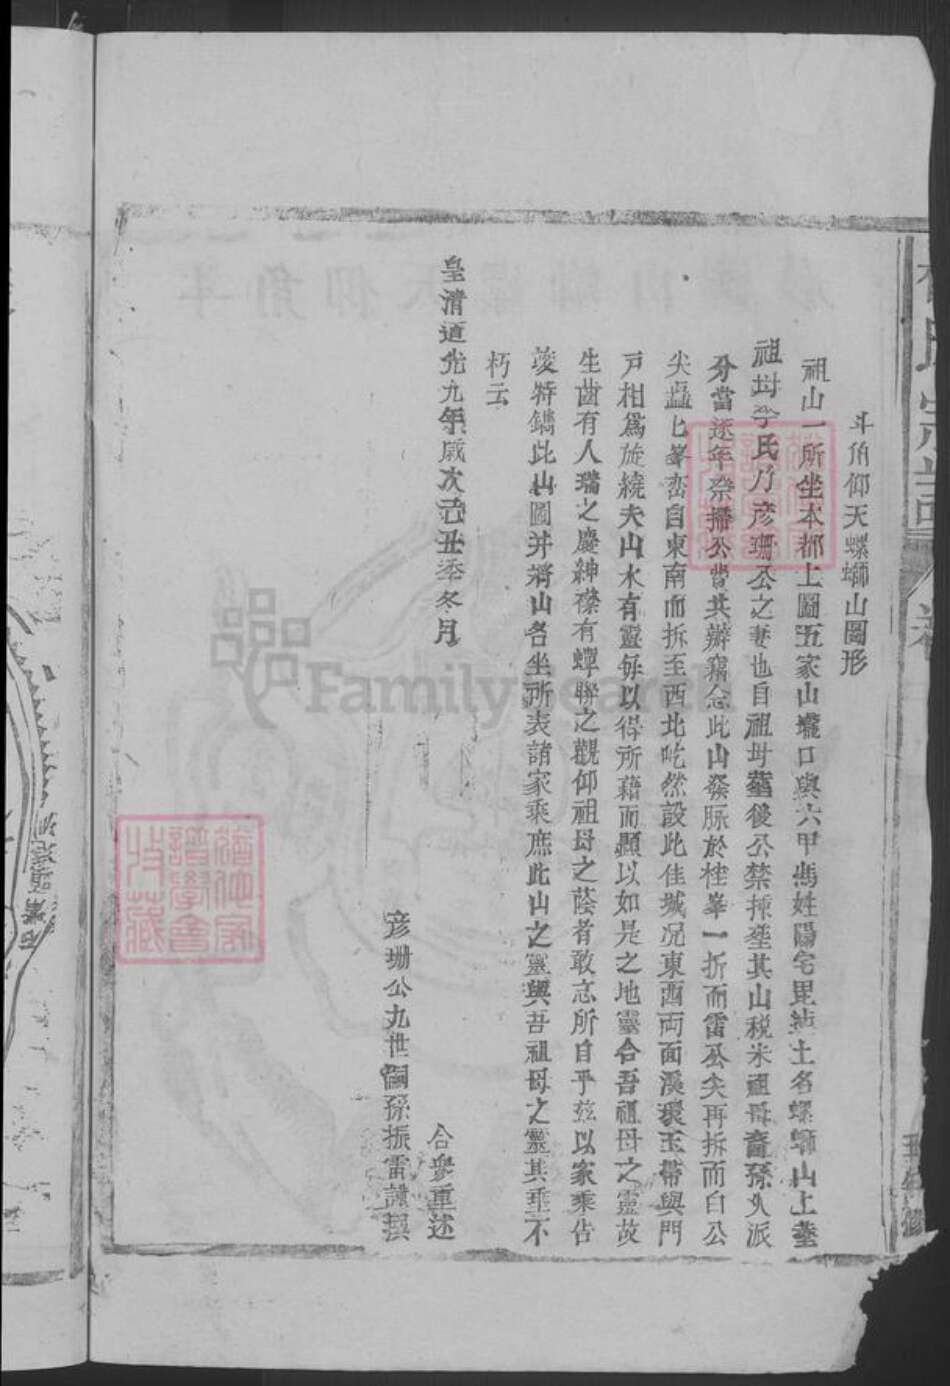 斗角仰天螺螄山圖形
祖山一所坐本都上圖五家山壠口與六甲馮姓陽宅毘連土名螺螄山上塟
祖母李氏乃彦珊公之妻也自祖母葬後公禁揀塟其山税米祖母裔孫入派
分當逐年祭掃公嘗共辦竊念此山發脈於桂峯一折而雷公尖再拆而白公
尖矗七峯峦自東南而拆至西北屹然設此佳城况東西両面溪環玉帶與門
戸相爲旋繞夫山水有靈每以得所藉而顯以如是之地靈合吾祖母之靈故
生齒有人瑞之慶紳襟有蟬聯之觀仰祖母之蔭者敢忘所自乎兹以家乗告
竣特鐫此山圖并將山各坐所表諸家乘庶此山之靈與吾祖母之靈其垂不
朽云
皇清道光九年歲次己丑季冬月
合衆重述
彦珊公九世嗣孫振雷謹撰
氏宗譜
卷